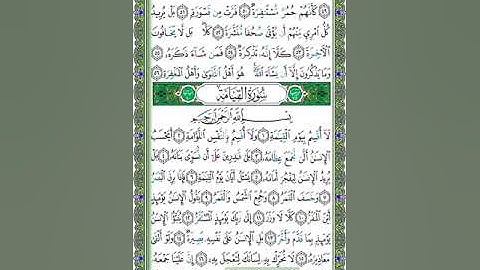 ﴿٤٩﴾ كَأَنَّهُمْ حُمُرٌ مُّسْتَنفِرَةٌ ﴿٥٠﴾ فَرَّتْ مِن قَسْوَرَةٍ ﴿٥١﴾ بَلْ يُرِيدُ
كُلُّ امْرِئٍ مِّنْهُمْ أَن يُؤْتَىٰ صُحُفًا مُّنَشَّرَةً ﴿٥٢﴾ كَلَّا ۖ بَل لَّا يَخَافُونَ
الْآخِرَةَ ﴿٥٣﴾ كَلَّا إِنَّهُ تَذْكِرَةٌ ﴿٥٤﴾ فَمَن شَاءَ ذَكَرَهُ ﴿٥٥﴾
وَمَا يَذْكُرُونَ إِلَّا أَن يَشَاءَ اللَّهُ ۚ هُوَ أَهْلُ التَّقْوَىٰ وَأَهْلُ الْمَغْفِرَةِ ﴿٥٦﴾
سُورَةُ الْقِيَامَةِ
بِسْمِ اللَّهِ الرَّحْمَٰنِ الرَّحِيمِ
لَا أُقْسِمُ بِيَوْمِ الْقِيَامَةِ ﴿١﴾ وَلَا أُقْسِمُ بِالنَّفْسِ اللَّوَّامَةِ ﴿٢﴾ أَيَحْسَبُ
الْإِنسَانُ أَلَّن نَّجْمَعَ عِظَامَهُ ﴿٣﴾ بَلَىٰ قَادِرِينَ عَلَىٰ أَن نُّسَوِّيَ بَنَانَهُ ﴿٤﴾ بَلْ
يُرِيدُ الْإِنسَانُ لِيَفْجُرَ أَمَامَهُ ﴿٥﴾ يَسْأَلُ أَيَّانَ يَوْمُ الْقِيَامَةِ ﴿٦﴾ فَإِذَا بَرِقَ الْبَصَرُ
﴿٧﴾ وَخَسَفَ الْقَمَرُ ﴿٨﴾ وَجُمِعَ الشَّمْسُ وَالْقَمَرُ ﴿٩﴾ يَقُولُ الْإِنسَانُ يَوْمَئِذٍ
أَيْنَ الْمَفَرُّ ﴿١٠﴾ كَلَّا لَا وَزَرَ ﴿١١﴾ إِلَىٰ رَبِّكَ يَوْمَئِذٍ الْمُسْتَقَرُّ ﴿١٢﴾ يُنَبَّأُ الْإِنسَانُ
يَوْمَئِذٍ بِمَا قَدَّمَ وَأَخَّرَ ﴿١٣﴾ بَلِ الْإِنسَانُ عَلَىٰ نَفْسِهِ بَصِيرَةٌ ﴿١٤﴾ وَلَوْ أَلْقَىٰ
مَعَاذِيرَهُ ﴿١٥﴾ لَا تُحَرِّكْ بِهِ لِسَانَكَ لِتَعْجَلَ بِهِ ﴿١٦﴾ إِنَّ عَلَيْنَا جَمْعَهُ